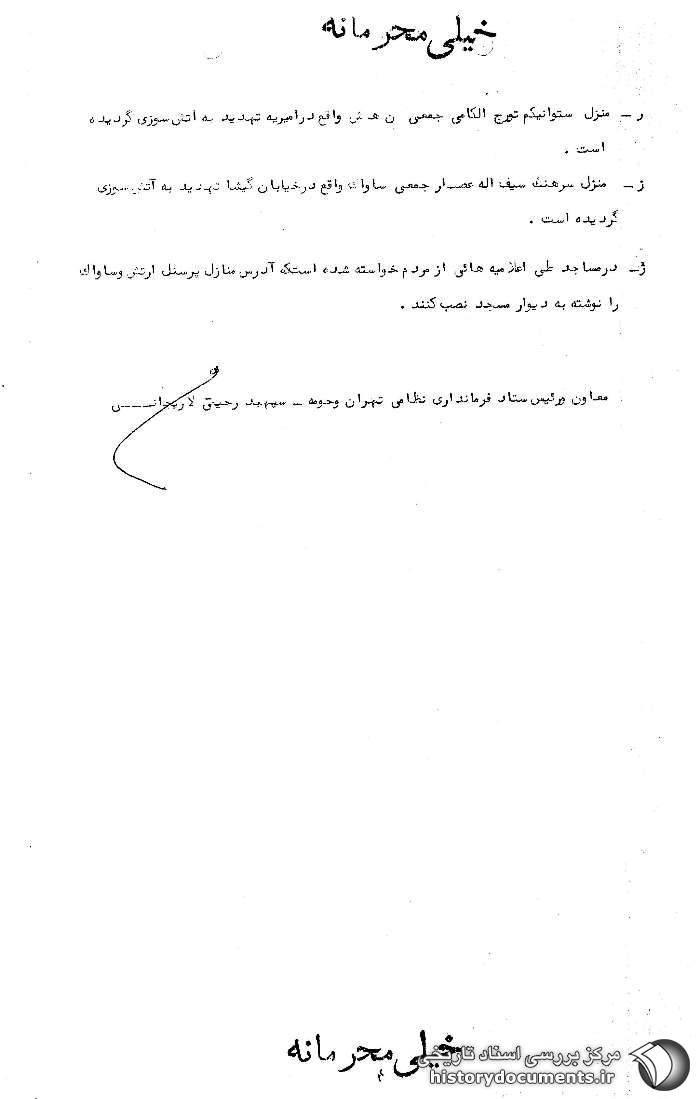 خیلی محرمانه
ر ـ منزل ستوانیکم تورج الکامی جمعی ن هـ ش واقع در امیریه تهدید به آتش سوزی گردیده
است .
ز ـ منزل سرهنگ سیف اله عصار جمعی ساواك واقع در خیابان گیشا تهدید به آتش سوزی
گردیده است .
ژ ـ در مساجد طی اعلامیه هائی از مردم خواسته شده است که آدرس منازل پرسنل ارتش و ساواك
را نوشته به دیوار مسجد نصب کنند .
معاون و رئیس ستاد فرمانداری نظامی تهران وحومه ـ سپهبد رحیمی لاریجانـــی
خیلی محرمانه
مرکز بررسی اسناد تاریخی
historydocuments.ir